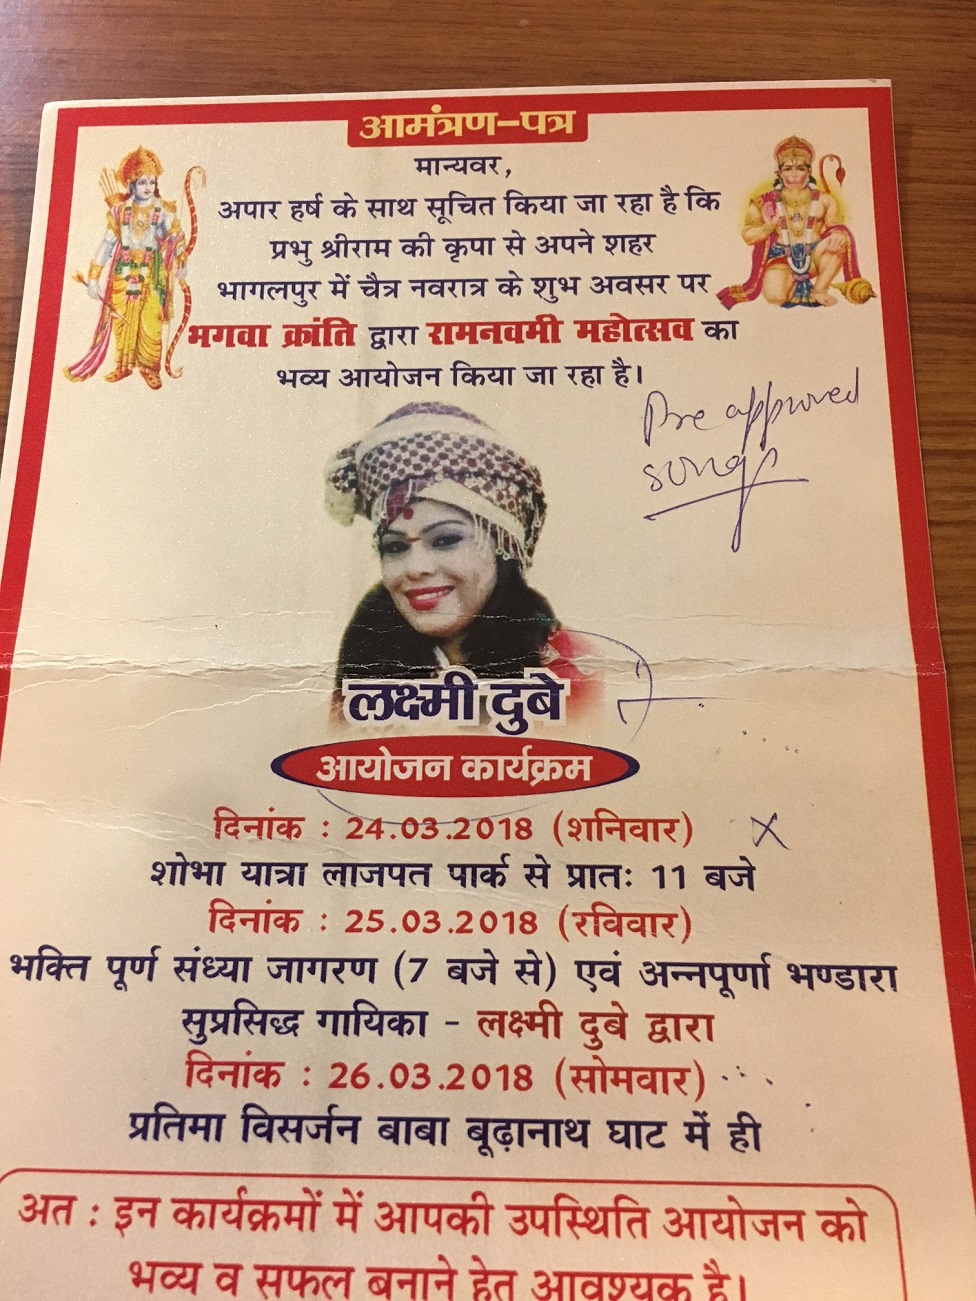 आमंत्रण-पत्र
मान्यवर,
अपार हर्ष के साथ सूचित किया जा रहा है कि
प्रभु श्रीराम की कृपा से अपने शहर
भागलपुर में चैत्र नवरात्र के शुभ अवसर पर
भगवा क्रांति द्वारा रामनवमी महोत्सव का
भव्य आयोजन किया जा रहा है।
Pre approved
songs
लक्ष्मी दुबे
आयोजन कार्यक्रम
दिनांक : 24.03.2018 (शनिवार) X
शोभा यात्रा लाजपत पार्क से प्रातः 11 बजे
दिनांक : 25.03.2018 (रविवार)
भक्ति पूर्ण संध्या जागरण (7 बजे से) एवं अन्नपूर्णा भण्डारा
सुप्रसिद्ध गायिका - लक्ष्मी दुबे द्वारा
दिनांक : 26.03.2018 (सोमवार)
प्रतिमा विसर्जन बाबा बूढ़ानाथ घाट में ही
अत : इन कार्यक्रमों में आपकी उपस्थिति आयोजन को
भव्य व सफल बनाने हेतु आवश्यक है।